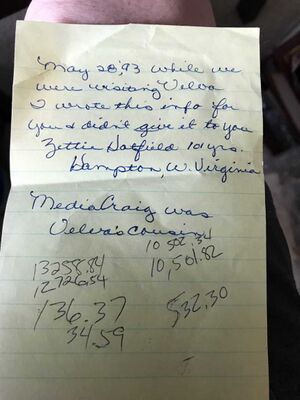 May 28, 93 while we
were visiting Velva
I wrote this info for
you & didn't give it to you
Zettie Hatfield 101 yrs.
Hampton, W. Virginia
Media Craig was
Velva's cousin
10 502.34
13258.84
10,501.82
12726.54
136.37
532.30
34.59